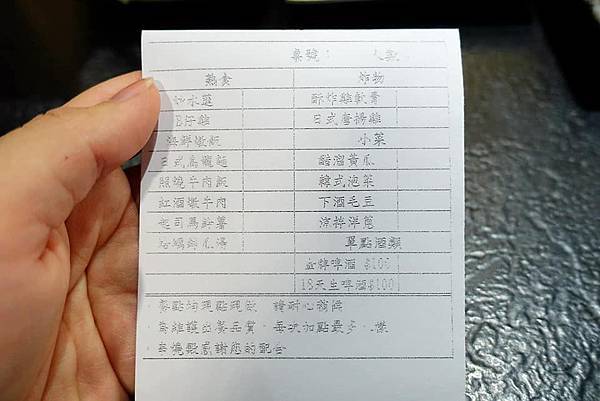 桌號：人數
熱食 炸物
水蓮 酥炸雞軟骨
仔雞 日式唐揚雞
海鮮燉飯 小菜
日式烏龍麵 醋溜黃瓜
照燒牛肉飯 韓式泡菜
紅酒燉牛肉 下酒毛豆
起司馬鈴薯 涼拌洋蔥
蛤蠣絲瓜湯 單點酒類
金牌啤酒 $100
18天生啤酒$100
餐點均現點現做 請耐心稍候
為維護出餐品質，每次加點最多 樣
幸機殿感謝您的配合